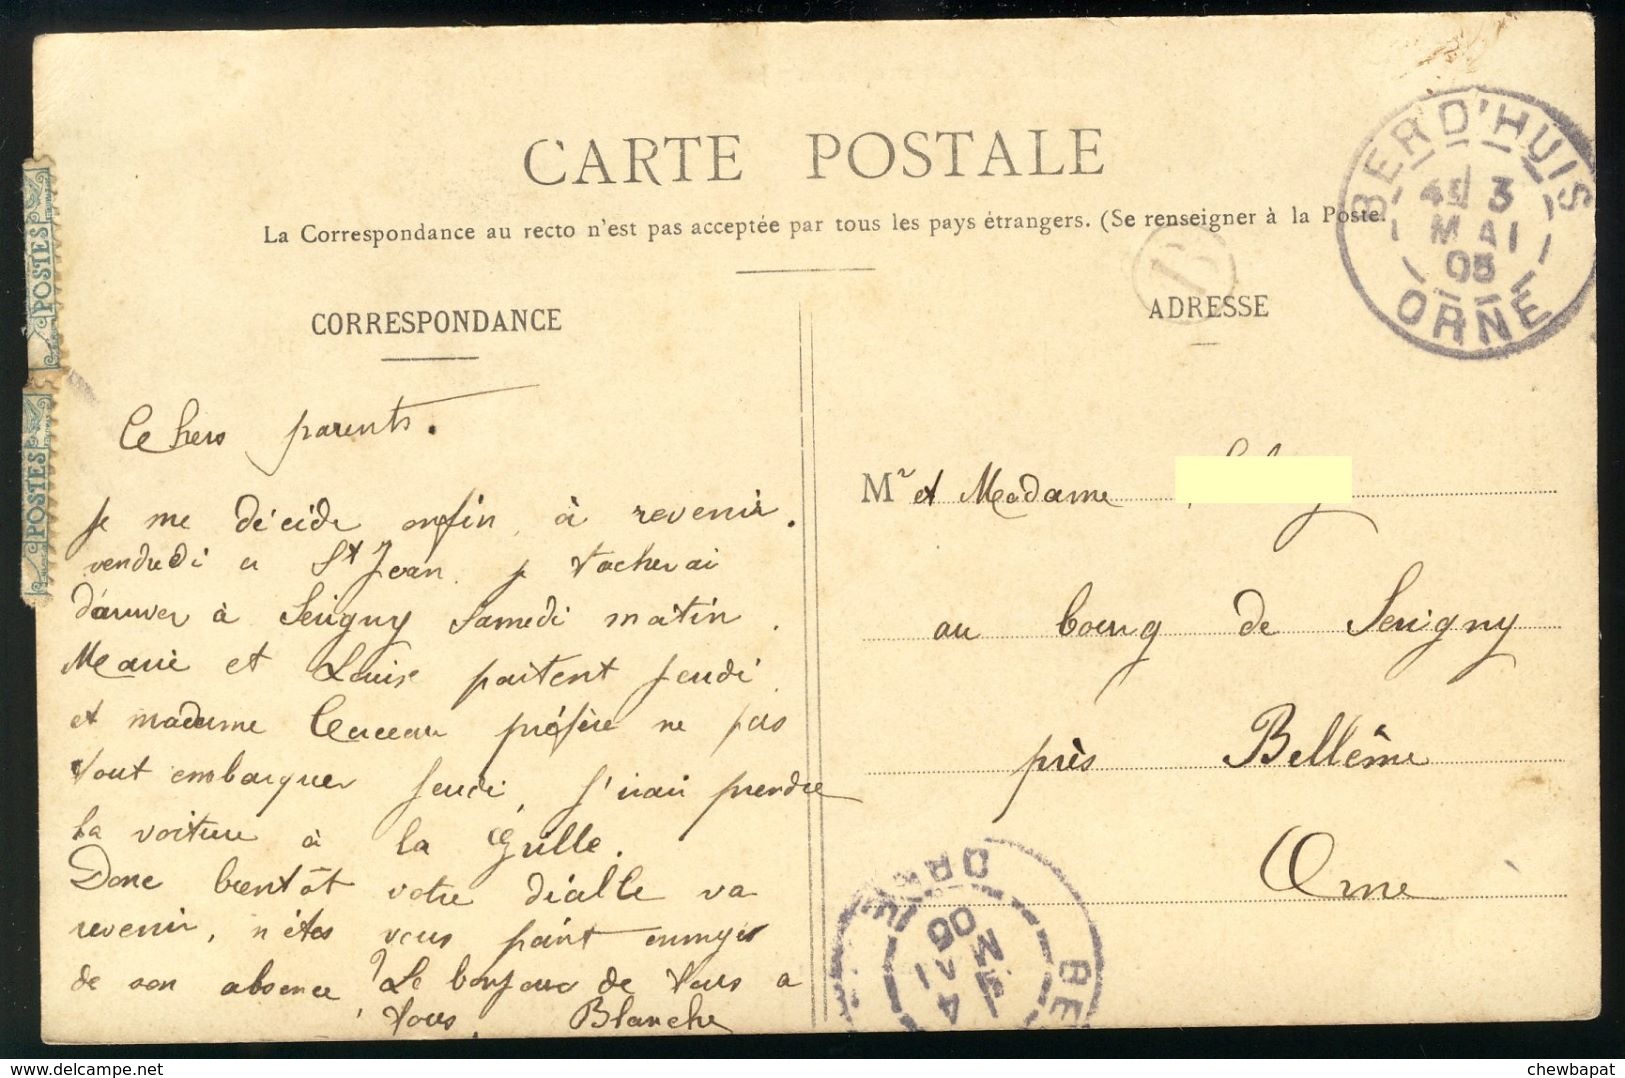 CARTE POSTALE
La Correspondance au recto n'est pas acceptée par tous les pays étrangers. (Se renseigner à la Poste.
CORRESPONDANCE
Chers parents.
je me décide enfin à revenir.
vendredi a St Jean je tacherai
d'arriver à Serigny Samedi matin.
Marie et Louise partent jeudi
et madame préfère ne pas
tout embarquer jeudi, j'irai prendre
la voiture à la Grille.
Donc bientôt votre diable va
revenir, n'êtes vous point ennuyés
de son absence? Le bonjour de tous a
tous. Blanche
ADRESSE
Mr et Madame
au bourg de Serigny
près Bellême
Orne
BERD'HUIS
3
MAI
05
ORNE
BE
ORNE
4
MAI
05
POSTES
POSTES
delcampe.net
chewbapat